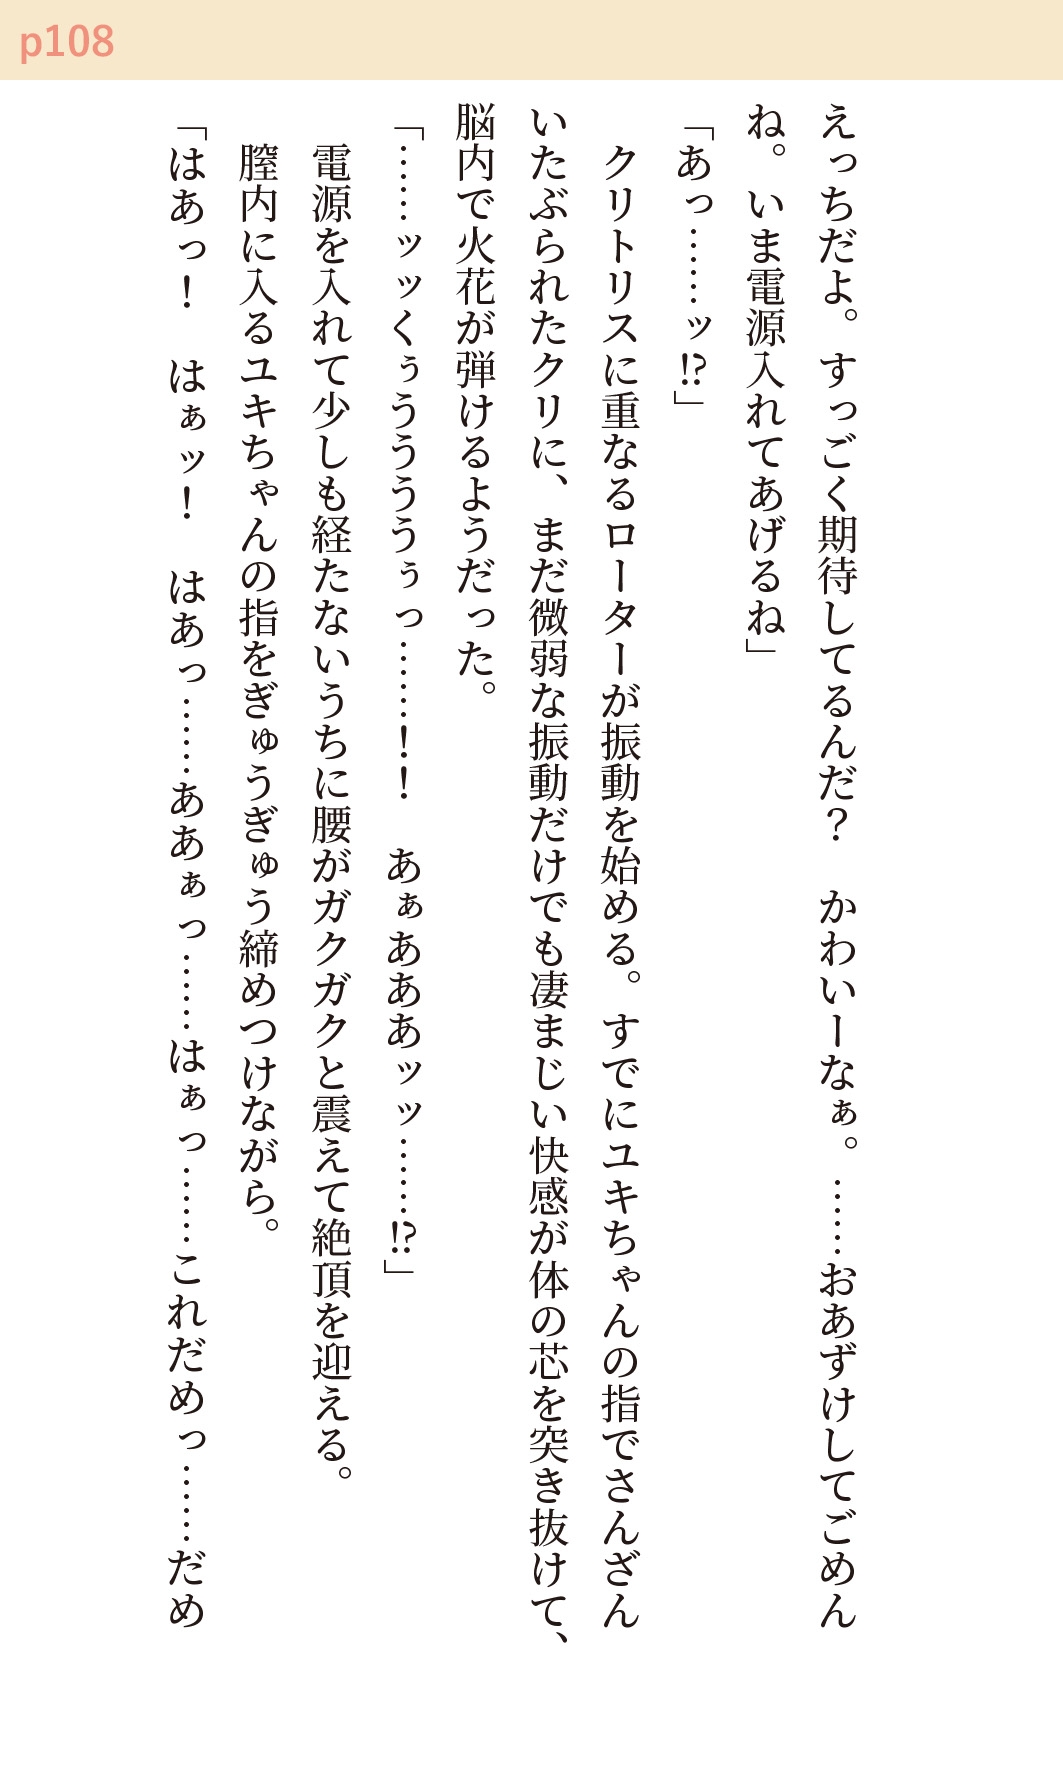 p108
えっちだよ。すっごく期待してるんだ？　かわいーなぁ。……おあずけしてごめん
ね。いま電源入れてあげるね」
「あっ……ッ⁉」
　クリトリスに重なるローターが振動を始める。すでにユキちゃんの指でさんざん
いたぶられたクリに、まだ微弱な振動だけでも凄まじい快感が体の芯を突き抜けて、
脳内で火花が弾けるようだった。
「……ッッくぅううううぅっ……！！　あぁあああッッ……⁉」
　電源を入れて少しも経たないうちに腰がガクガクと震えて絶頂を迎える。
　膣内に入るユキちゃんの指をぎゅうぎゅう締めつけながら。
「はあっ！　はぁッ！　はあっ……ああぁっ……はぁっ……これだめっ……だめ